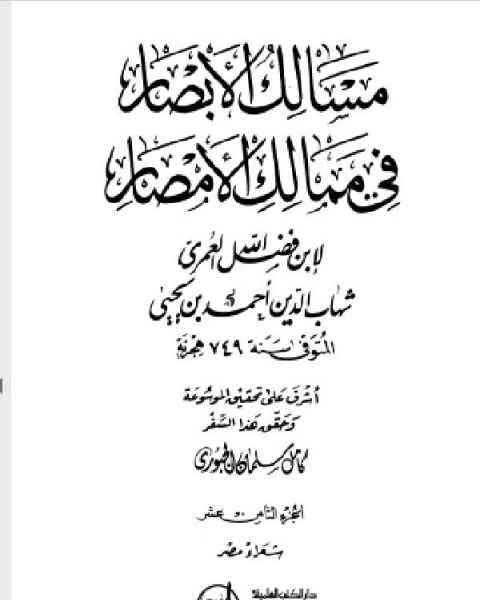 مسالك الأبصار
في ممالك الأمصار
لابن فضل الله العمري
شهاب الدين أحمد بن يحيى
المتوفى سنة ٧٤٩ هجرية
أشرف على تحقيق الموسوعة
وحقق هذا السفر
كامل سلمان الجبوري
الجزء الثامن عشر
شعراء مصر
دار الكتب العلمية